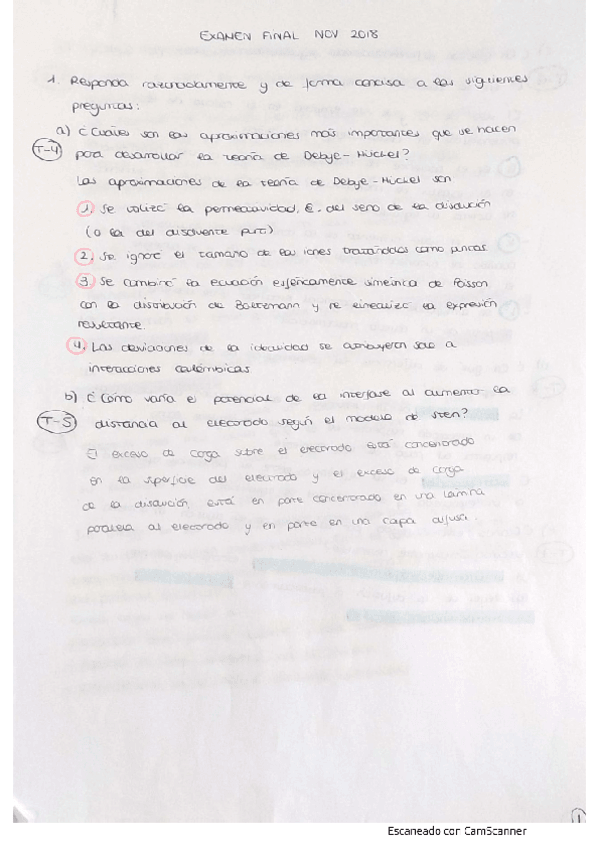 EXAMEN FINAL NOV 2018
1. Responda razonadamente y de forma concisa a las siguientes
preguntas:
a) ¿Cuáles son las aproximaciones más importantes que se hacen
T-4 para desarrollar la teoría de Debye-Hückel?
Las aproximaciones de la teoría de Debye-Hückel son
1. Se utilizó la permeatividad, ε, del seno de la disolución
(o la del disolvente puro)
2. Se ignoró el tamaño de los iones tratándolos como puntos
3. Se combinó la ecuación esféricamente simétrica de Poisson
con la distribución de Boltzmann y se linealizó la expresión
resultante.
4. Las desviaciones de la idealidad se atribuyeron solo a
interacciones culómbicas
b) ¿Cómo varía el potencial de la interfase al aumentar la
T-5 distancia al electrodo según el modelo de Stern?
El exceso de carga sobre el electrodo está concentrado
en la superficie del electrodo y el exceso de carga
de la disolución está en parte concentrado en una lámina
paralela al electrodo y en parte en una capa difusa.
1
Escaneado con CamScanner